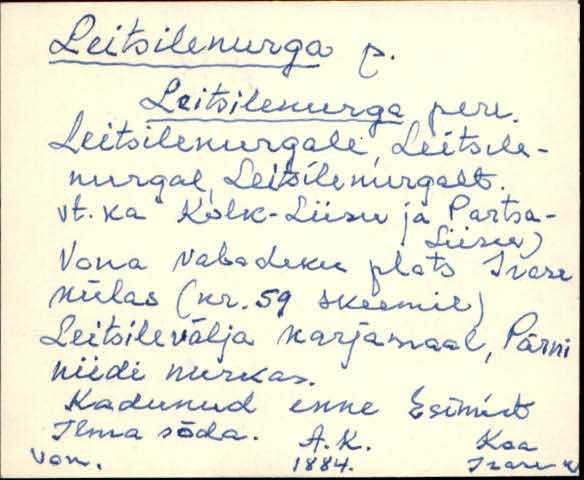 Leitsilenurga p.
Leitsilenurga pere.
Leitsilenurgale, Leitsile-
nurgal, Leitsilenurgalt.
vt. ka Kolk-Liisu ja Partsa-
Liisu)
Vona vabadiku plats Ivare
külas (nr. 59 skeemil)
Leitsilevälja karjamaal, Pärni
niidi nurkas.
Kadunud enne Esimist
Ilma sõda. A.K. Kaa
Von. 1884. Ivare k